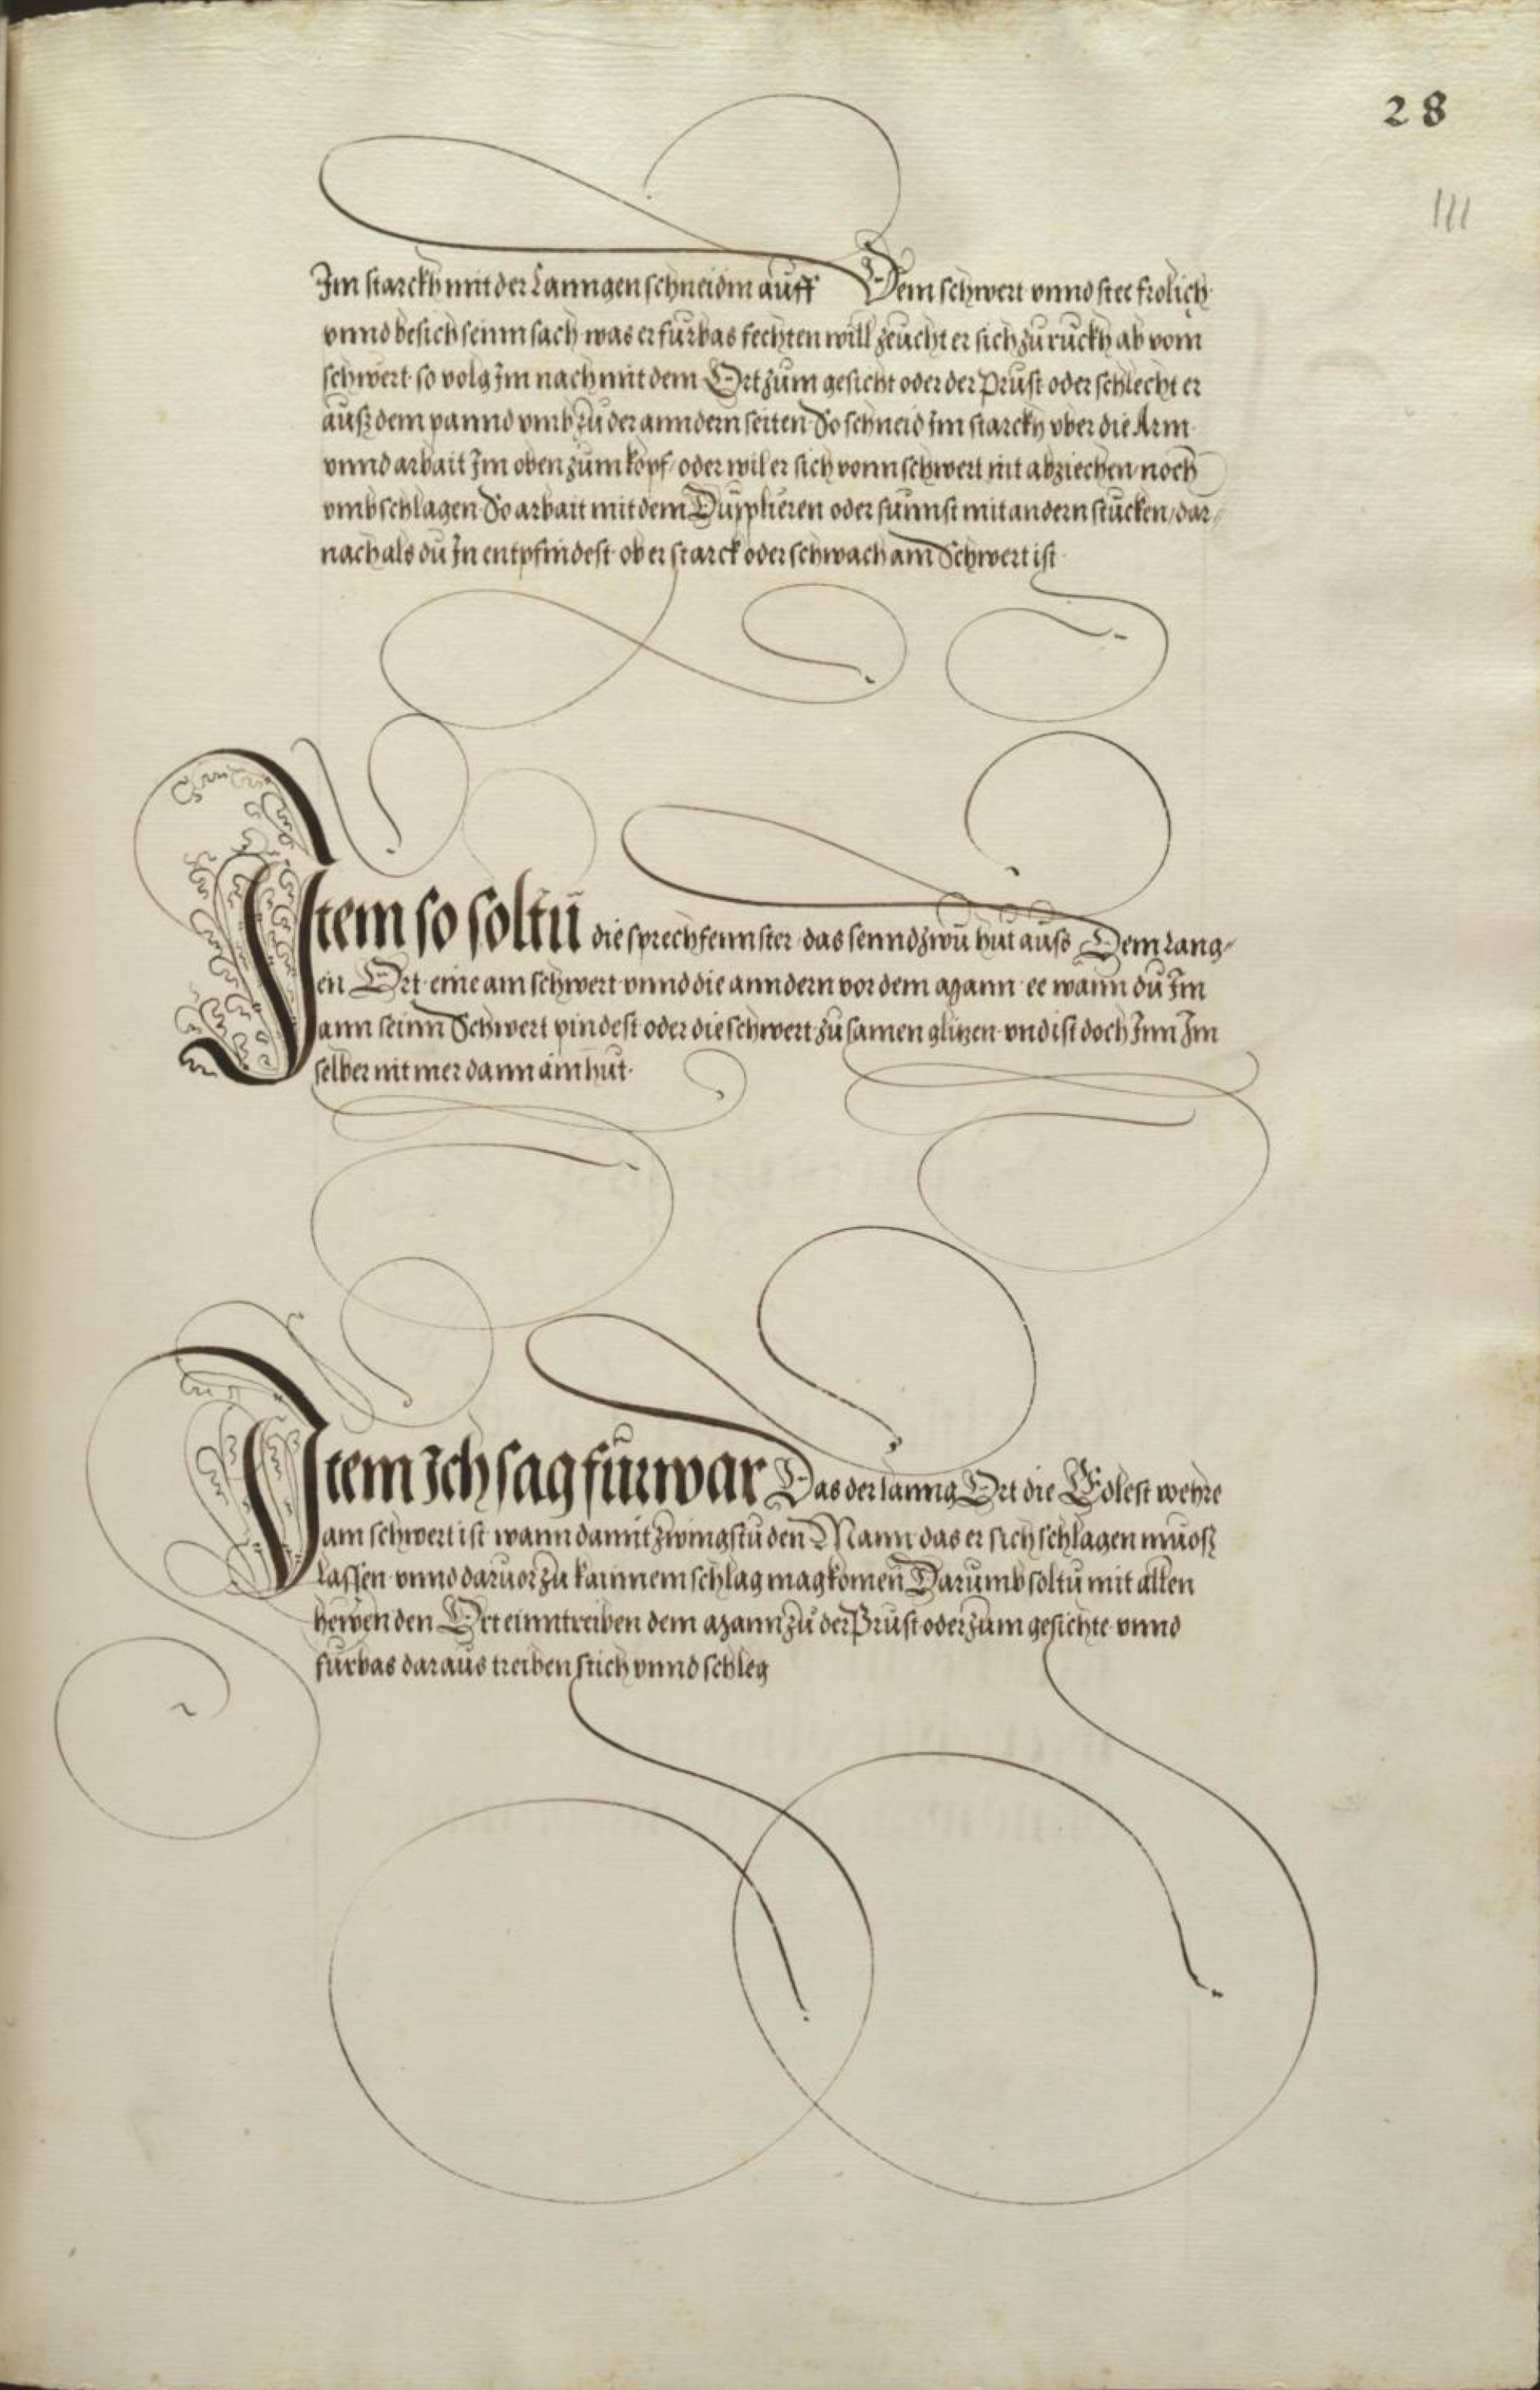 28
111
Im starckh mit der Lanngen schneidm auff Dem schwert vnnd stee frolich
vnnd besich seinn sach was er furbas fechten will zeucht er sich zu ruckh ab vom
schwert so volg Im nach mit dem Ort zum gesicht oder der Prust oder schlecht er
ausz dem pannd vmb zu der anndern seiten So schneid Im starckh vber die Arm
vnnd arbait Im oben zum kopf oder wil er sich vonn schwert nit abziechen noch
vmbschlagen So arbait mit dem Duplieren oder sunnst mit andern stucken dar
nach als du In entpfindest ob er starck oder schwach am Schwert ist
Item so soltu die sprechfennster das sennd zwu hut auss Dem lang
en Ort eine am schwert vnnd die anndern vor dem Mann ee wann du Im
ann seinn Schwert pindest oder die schwert zu samen glitzen vnd ist doch Inn Im
selber nit mer dann ain hut
Item Ich sag fürwar Das der lanng Ort die Edlest wehre
am schwert ist wann damit zwingstu den Mann das er sich schlagen muosz
lassen vnnd daruor zu kainnem schlag mag komen Darumb soltu mit allen
hewen den Ort einntreiben dem Mann zu der Prust oder zum gesichte vnnd
furbas daraus treiben stich vnnd schleg